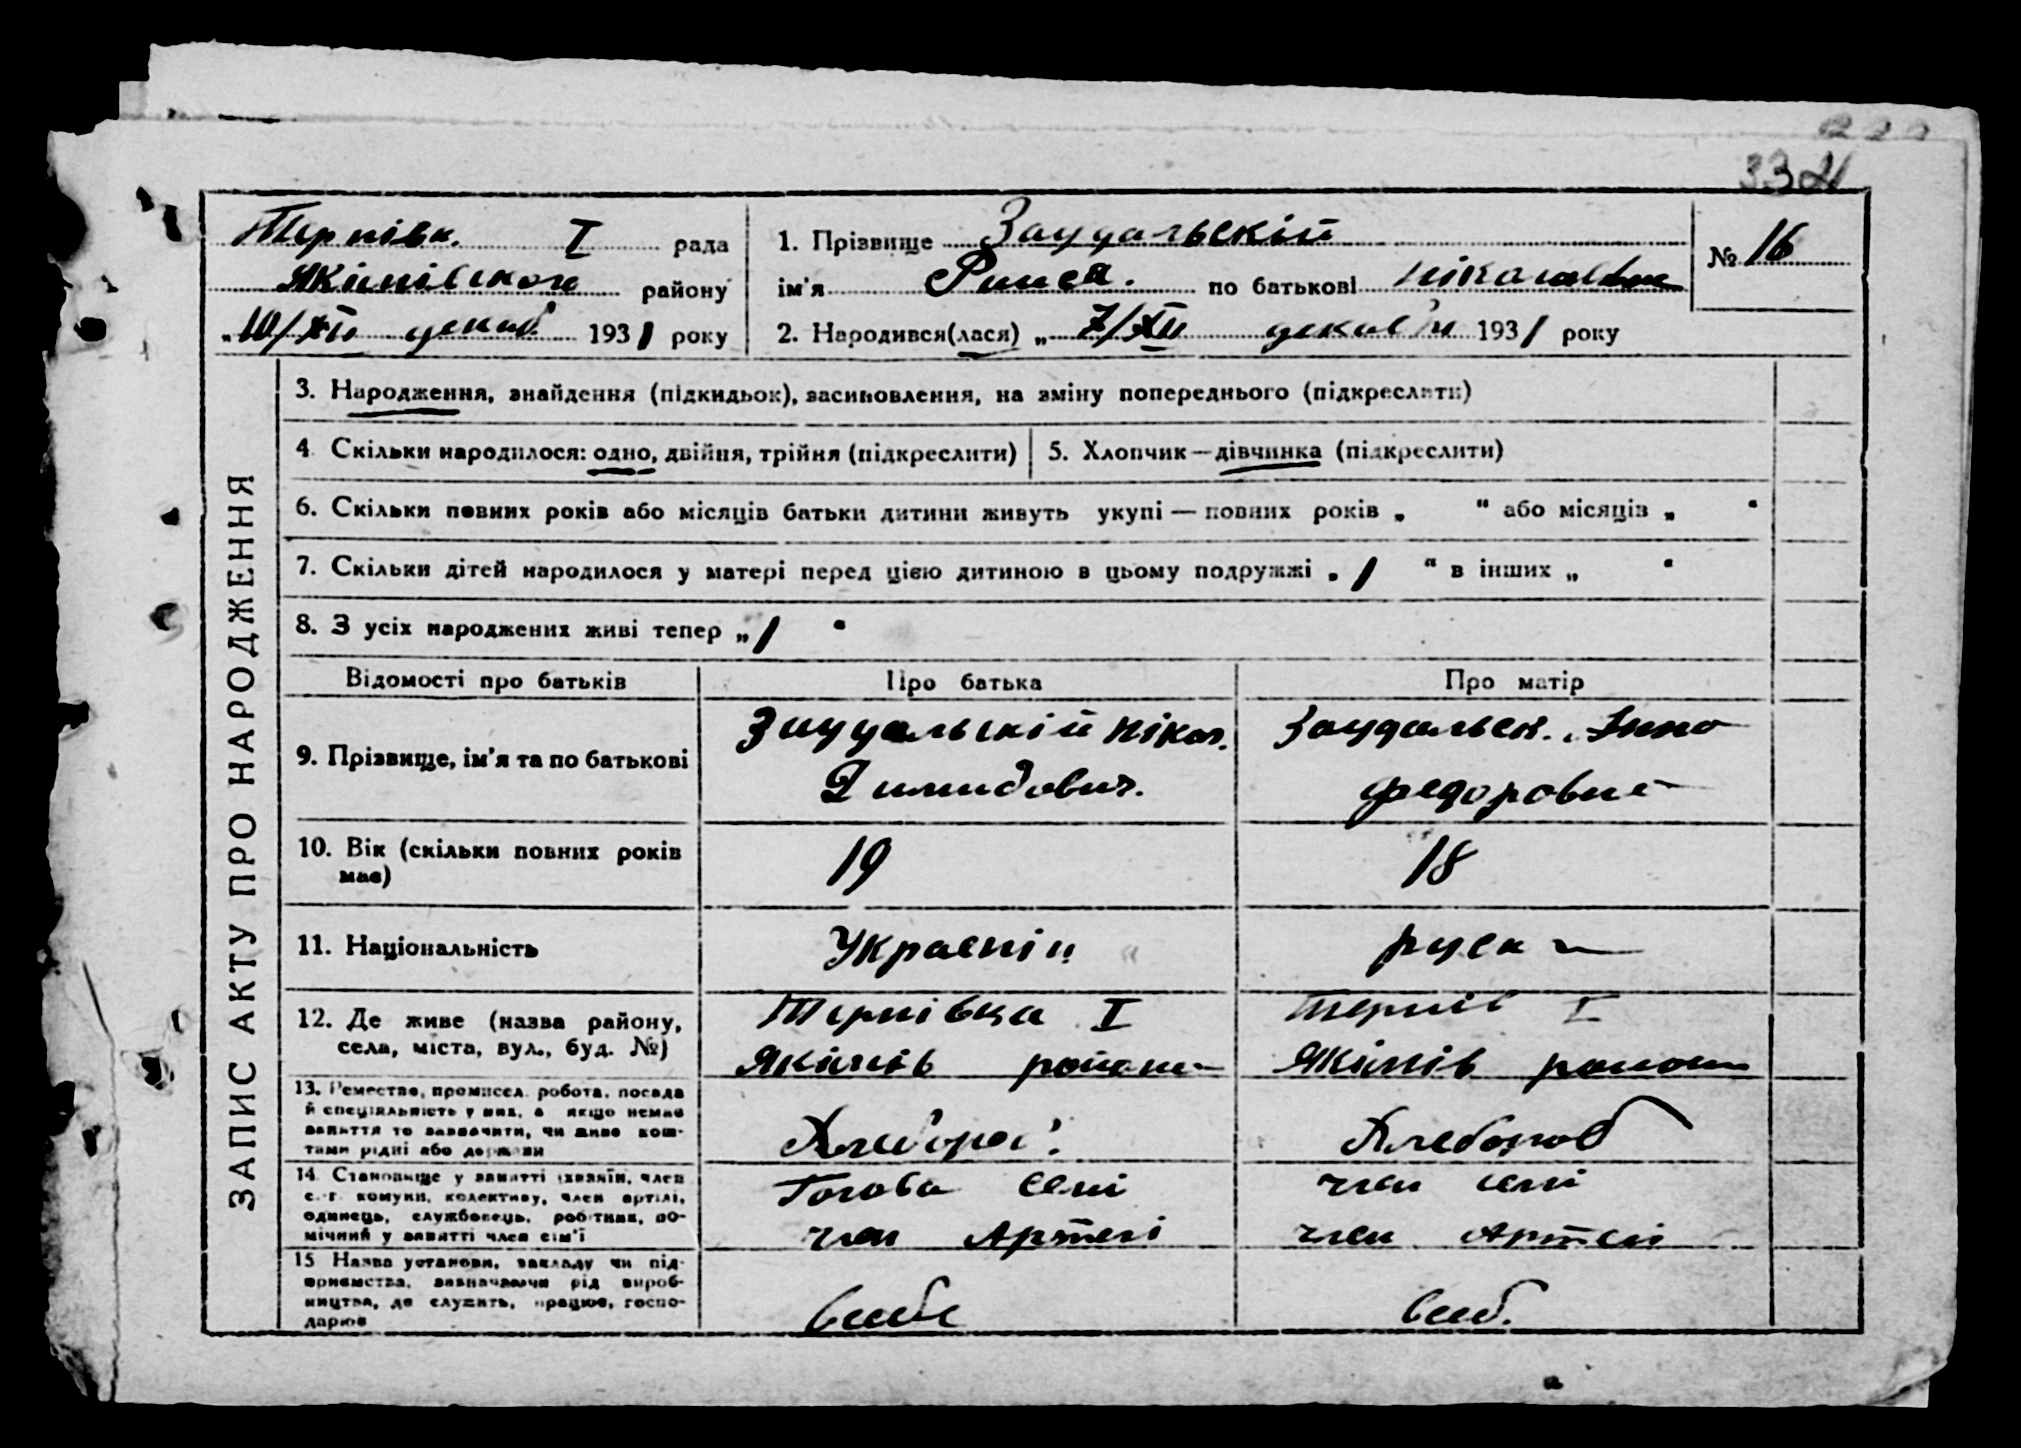 334
Терпівк. I рада
Якімівского району
„10/XII декаб 1931 року
1. Прізвище Заудальскій
ім'я Раиса. по батькові
№ 16
2. Народився(лася) „ 7/XII декаб'я 1931 року
ЗАПИС АКТУ ПРО НАРОДЖЕННЯ
3. Народження, знайдення (підкидьок), засиновлення, на зміну попереднього (підкреслити)
4. Скільки народилося: одно, двійня, трійня (підкреслити)
5. Хлопчик—дівчинка (підкреслити)
6. Скільки повних років або місяців батьки дитини живуть укупі — повних років „ “ або місяців „ “
7. Скільки дітей народилося у матері перед цією дитиною в цьому подружжі „ 1 “ в інших „ “
8. З усіх народжених живі тепер „ 1 “
Відомості про батьків
Про батька
Про матір
9. Прізвище, ім'я та по батькові
Заудальскій Нікол.
Димидович.
Заудальск. Анно
Федоровн
10. Вік (скільки повних років
має)
19
18
11. Національність
Украєнін
руск
12. Де живе (назва району,
села, міста, вул., буд. №)
Терпівка I
Якімів района
Терпів I
Якімів района
13. Ремество, промисел, робота, посада
й спеціяльність у них, а якщо немає
заняття то зазначити, чи живе кош-
тами рідні або держави
Хлебороб.
Хлебороб
14. Становище у занятті (хазяїн, член
с.-г. комуни, колективу, член артілі,
одинець, службовець, робітник, по-
мічний у занятті член сім'ї
Голова семі
член Артелі
член семі
член Артелі
15. Назва установи, закладу чи під-
приємства, зазначаючи рід вироб-
ництва, де служить, працює, госпо-
дарює